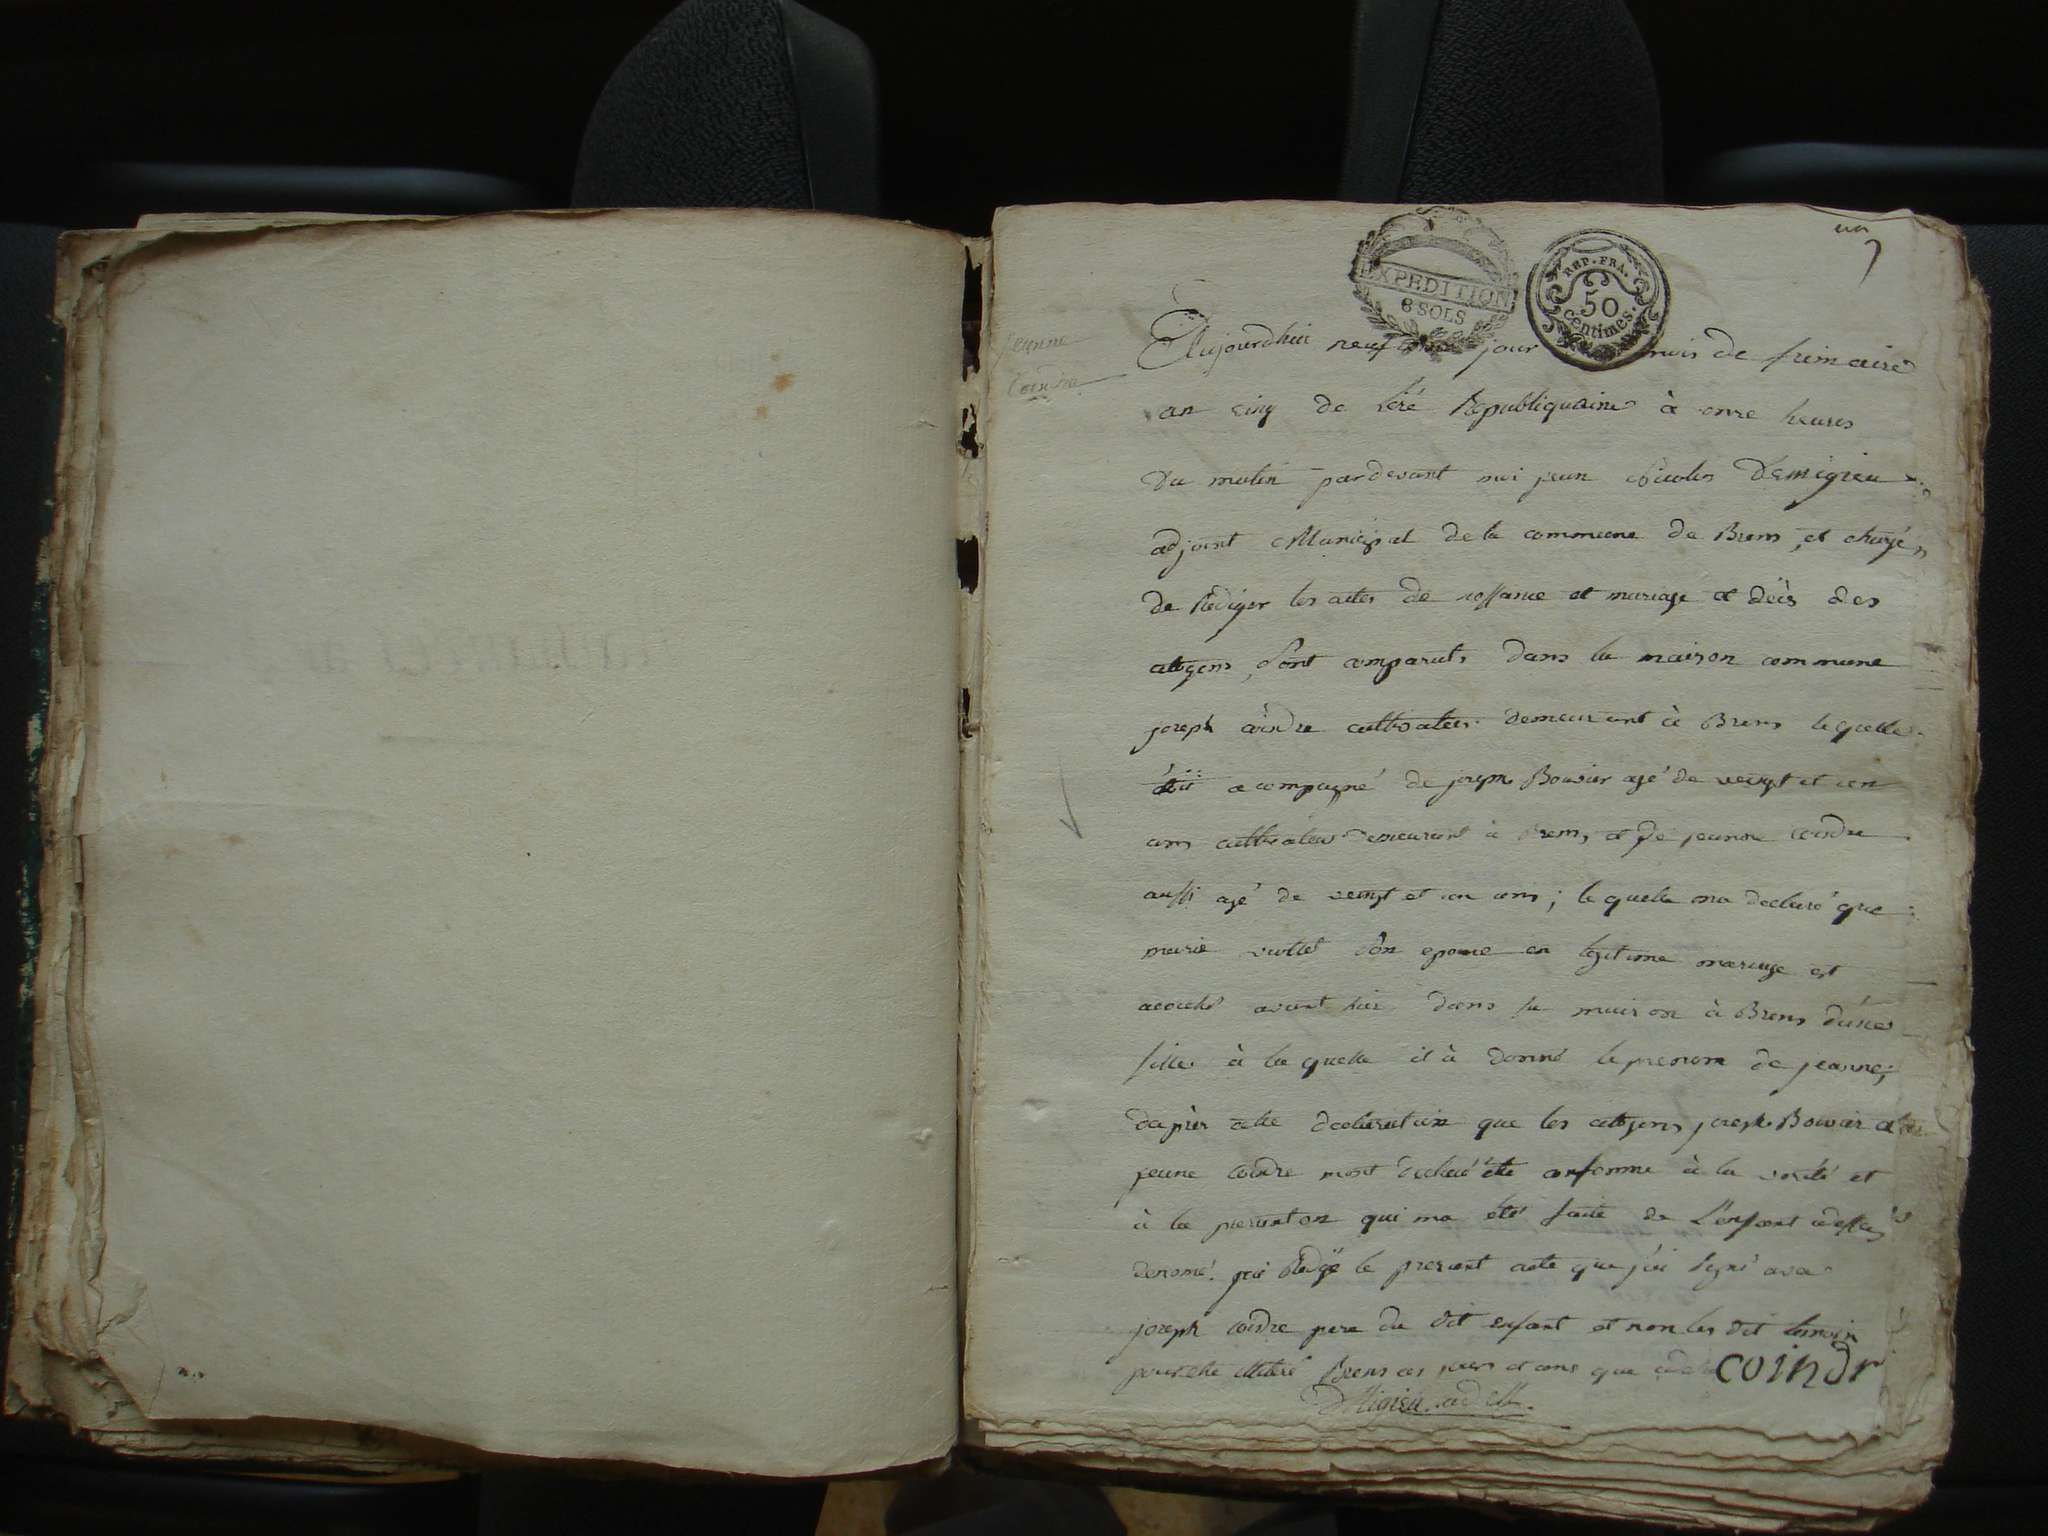 un
EXPEDITION
6 SOLS
REP. FRA.
50
Centimes.
Jeanne
Coindre
Aujourdhui neuf jour mois de frimaire
an cinq de lere Republiquaine à onze heures
du matin pardevant moi jean Nicolas Demigieu
adjoint Municipal de la commune de Brens, et chargé
de Rediger les actes de et mariage et décès des
citoyens, Sont comparuts dans la maison commune
joseph coindre cultivateur demeurant à Brens le quelle
étoit acompagné de joseph Bouvier agé de veingt et un
ans cultivateur demeurant à Brens, et de jeanne coindre
aussi agé de veingt et un ans; le quelle ma declaré que
marie Son epouse en legitime mariage est
acouché avant hier dans sa maison à Brens dúne
fille à la quelle il à donné le prenom de jeanne;
dapres cette declaration que les citoyens joseph Bouvier et
jeune coindre mont declaré étre conforme à la verité et
à la qui ma eté faite de L'enfant
denomé. jai Redigé le present acte que j'ai Signé avec
joseph coindre pere du dit enfant et non les dit temoin
pour Brens ces jours et ans que coindr
DMigieu